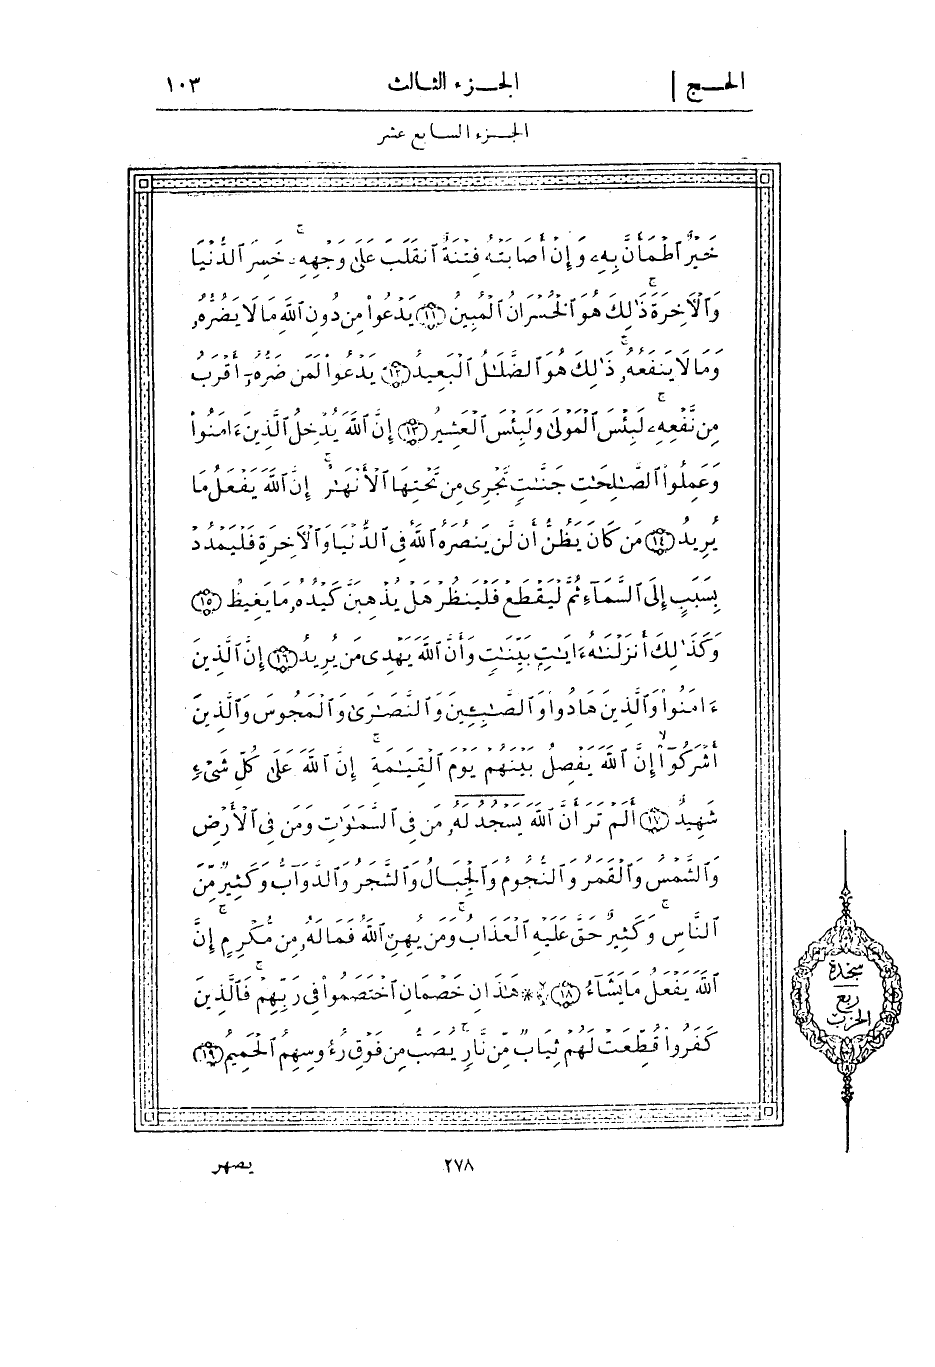 الحج الجزء الثالث ١٠٣
الجزء السابع عشر
خَيْرٌ ٱطْمَأَنَّ بِهِۦ وَإِنْ أَصَابَتْهُ فِتْنَةٌ ٱنقَلَبَ عَلَىٰ وَجْهِهِۦ خَسِرَ ٱلدُّنْيَا
وَٱلْأَخِرَةَ ۚ ذَٰلِكَ هُوَ ٱلْخُسْرَانُ ٱلْمُبِينُ ١١ يَدْعُوا۟ مِن دُونِ ٱللَّهِ مَا لَا يَضُرُّهُۥ
وَمَا لَا يَنفَعُهُۥ ۚ ذَٰلِكَ هُوَ ٱلضَّلَـٰلُ ٱلْبَعِيدُ ١٢ يَدْعُوا۟ لَمَن ضَرُّهُۥٓ أَقْرَبُ
مِن نَّفْعِهِۦ ۚ لَبِئْسَ ٱلْمَوْلَىٰ وَلَبِئْسَ ٱلْعَشِيرُ ١٣ إِنَّ ٱللَّهَ يُدْخِلُ ٱلَّذِينَ ءَامَنُوا۟
وَعَمِلُوا۟ ٱلصَّـٰلِحَـٰتِ جَنَّـٰتٍ تَجْرِى مِن تَحْتِهَا ٱلْأَنْهَـٰرُ ۚ إِنَّ ٱللَّهَ يَفْعَلُ مَا
يُرِيدُ ١٤ مَن كَانَ يَظُنُّ أَن لَّن يَنصُرَهُ ٱللَّهُ فِى ٱلدُّنْيَا وَٱلْأَخِرَةِ فَلْيَمْدُدْ
بِسَبَبٍ إِلَى ٱلسَّمَآءِ ثُمَّ لْيَقْطَعْ فَلْيَنظُرْ هَلْ يُذْهِبَنَّ كَيْدُهُۥ مَا يَغِيظُ ١٥
وَكَذَٰلِكَ أَنزَلْنَـٰهُ ءَايَـٰتٍ بَيِّنَـٰتٍ وَأَنَّ ٱللَّهَ يَهْدِى مَن يُرِيدُ ١٦ إِنَّ ٱلَّذِينَ
ءَامَنُوا۟ وَٱلَّذِينَ هَادُوا۟ وَٱلصَّـٰبِـِٔينَ وَٱلنَّصَـٰرَىٰ وَٱلْمَجُوسَ وَٱلَّذِينَ
أَشْرَكُوٓا۟ إِنَّ ٱللَّهَ يَفْصِلُ بَيْنَهُمْ يَوْمَ ٱلْقِيَـٰمَةِ ۚ إِنَّ ٱللَّهَ عَلَىٰ كُلِّ شَىْءٍ
شَهِيدٌ ١٧ أَلَمْ تَرَ أَنَّ ٱللَّهَ يَسْجُدُ لَهُۥ مَن فِى ٱلسَّمَـٰوَٰتِ وَمَن فِى ٱلْأَرْضِ
وَٱلشَّمْسُ وَٱلْقَمَرُ وَٱلنُّجُومُ وَٱلْجِبَالُ وَٱلشَّجَرُ وَٱلدَّوَآبُّ وَكَثِيرٌ مِّنَ
ٱلنَّاسِ ۖ وَكَثِيرٌ حَقَّ عَلَيْهِ ٱلْعَذَابُ ۗ وَمَن يُهِنِ ٱللَّهُ فَمَا لَهُۥ مِن مُّكْرِمٍ ۚ إِنَّ
ٱللَّهَ يَفْعَلُ مَا يَشَآءُ ١٨ * هَـٰذَانِ خَصْمَانِ ٱخْتَصَمُوا۟ فِى رَبِّهِمْ ۖ فَٱلَّذِينَ
كَفَرُوا۟ قُطِّعَتْ لَهُمْ ثِيَابٌ مِّن نَّارٍ يُصَبُّ مِن فَوْقِ رُءُوسِهِمُ ٱلْحَمِيمُ ١٩
سجدة
ربع
الحزب
٢٧٨ يصهر